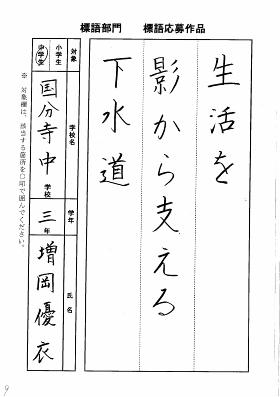 標語部門 標語応募作品
生活を
影から支える
下水道
対象
小学生
中学生
学校名
国分寺中学校
学年
三年
氏名
増岡優衣
※ 対象欄は、該当する箇所を○印で囲んでください。
9